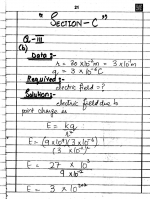 21
"SECTION-C"
Q-III
(b)
Data :-
r = 30 x10⁻²m = 3 x10⁻¹m
q = 3 x10⁻⁶C
Required :-
electric field = ?
Solution:-
electric field due to
point charge is
E = kq
r²
E = (9 x10⁹)(3 x10⁻⁶)
(3 x10⁻¹)²
E = 27 x 10³
9 x10⁻²
E = 3 x 10³⁺²